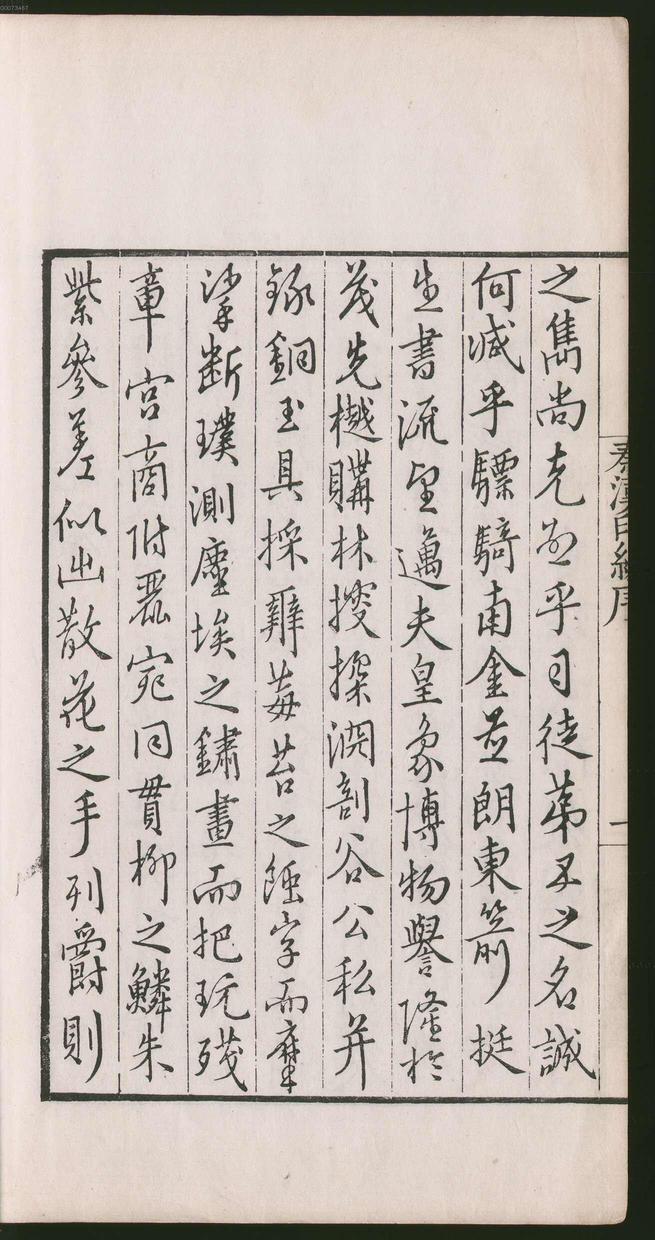 之雋尚克並乎司徒第五之名誠
何減乎驃騎南金並朗東箭挺
生書流望邁夫皇象博物譽隆於
茂先樾購林搜探淵剖谷公私并
錄銅玉具採辭莓苔之蝕字而摩
挲斷璞測塵埃之鏽畫而把玩殘
章宮商附麗宛同貫柳之鱗朱
紫參差似出散花之手列爵則
秦漢印統序
一
00073467